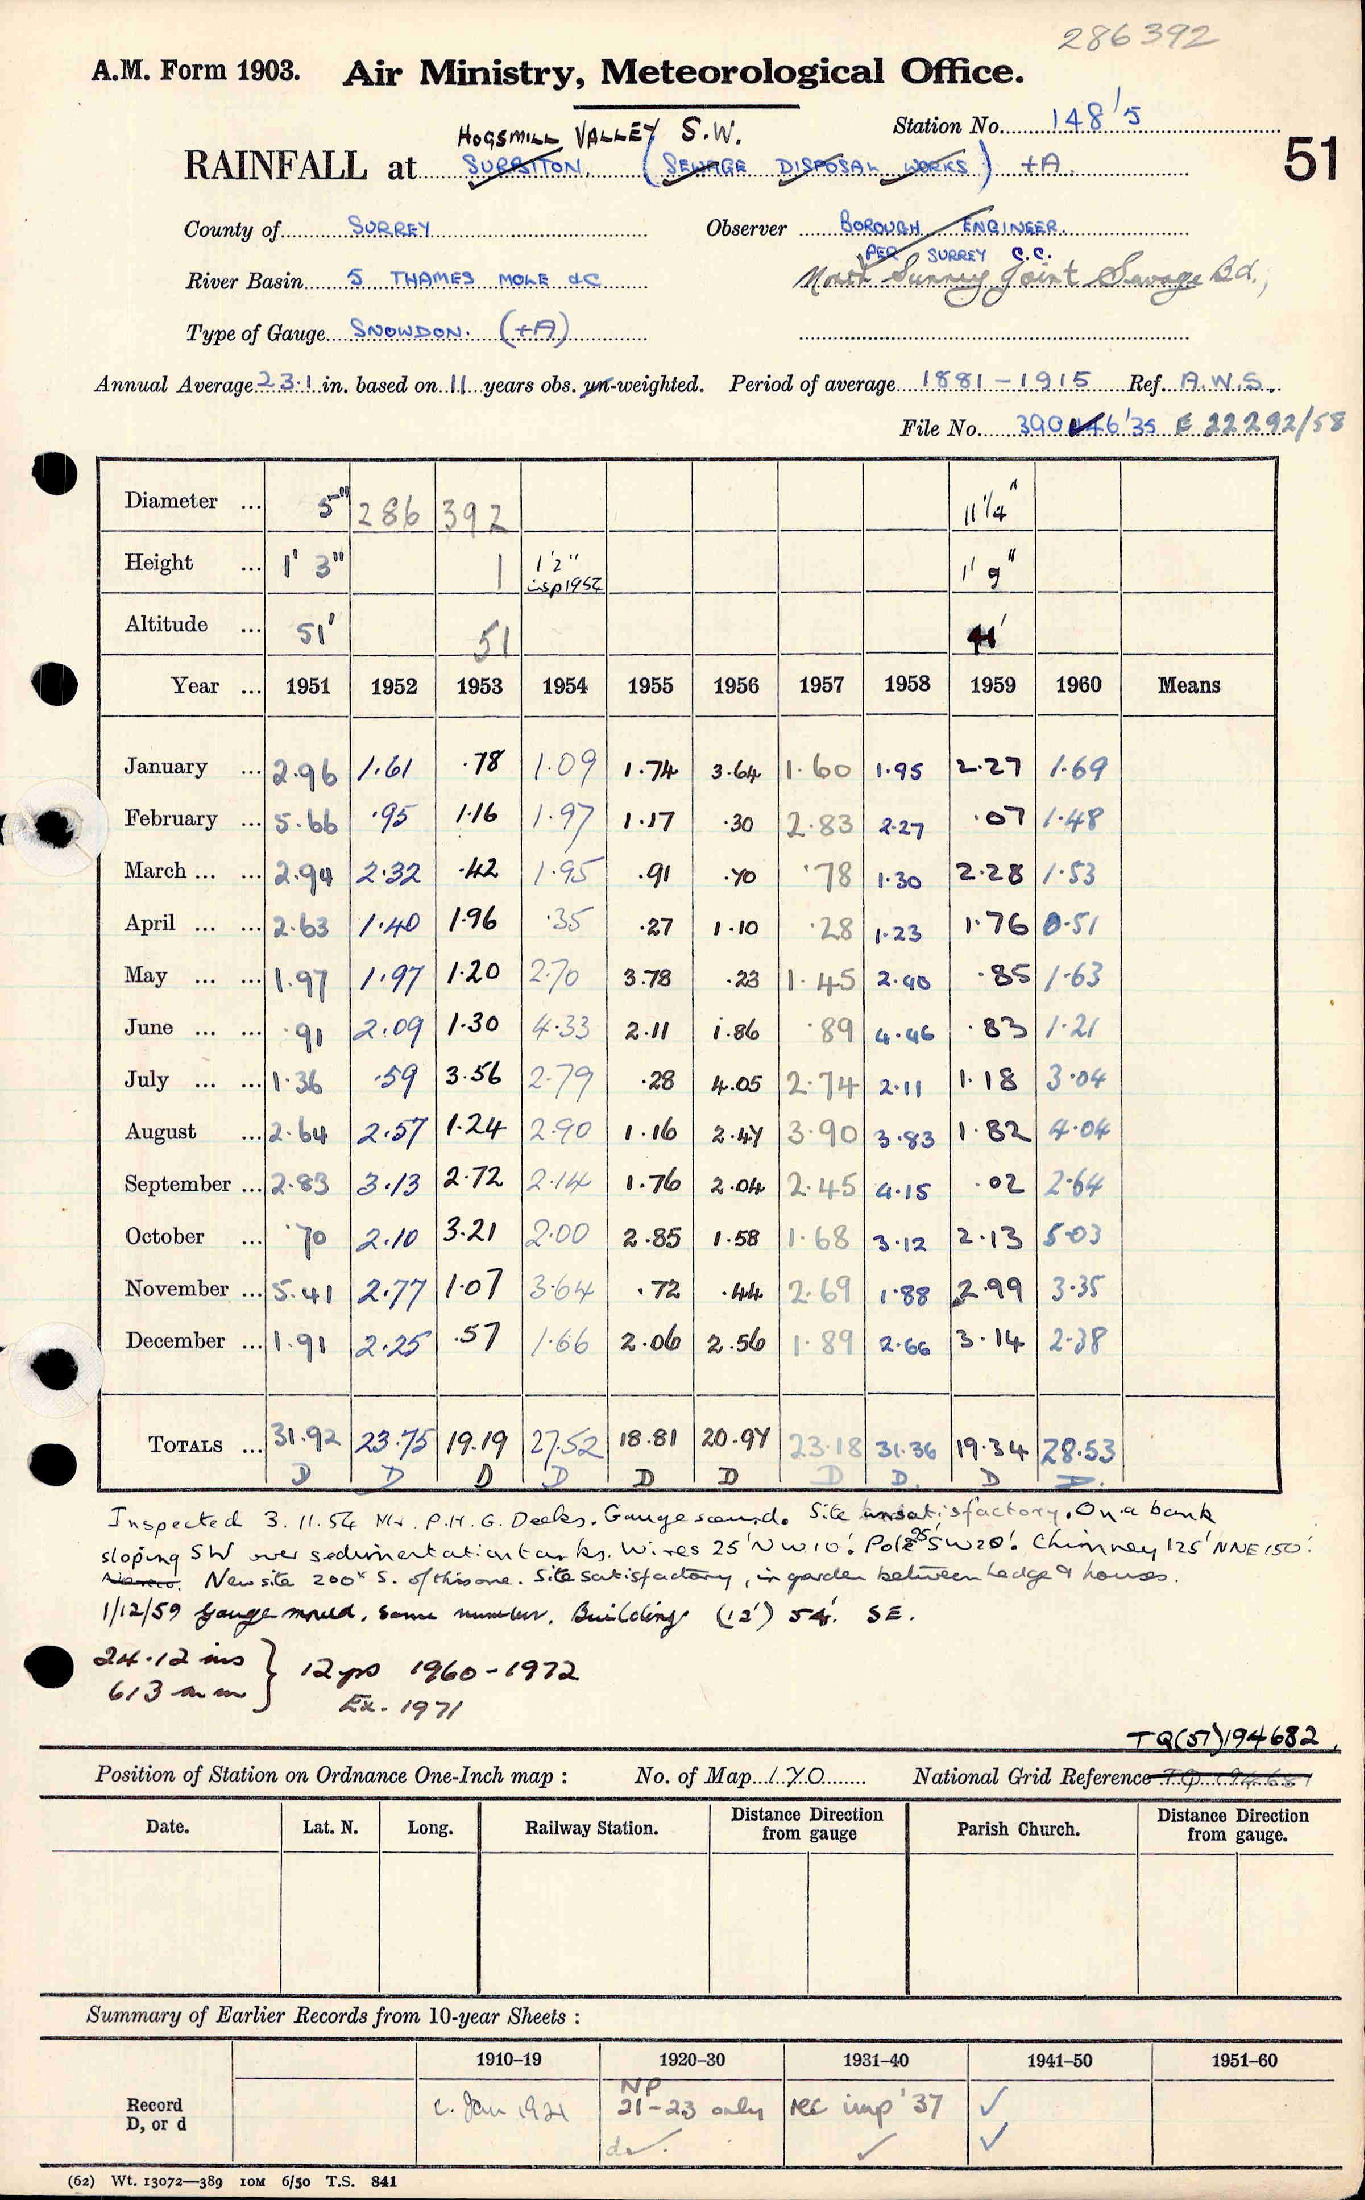 286392
A.M. Form 1903. Air Ministry, Meteorological Office.
HOGSMILL VALLEY S.W. Station No. 148'5
RAINFALL at SURBITON. (SEWAGE DISPOSAL WORKS) +A. 51
County of SURREY Observer BOROUGH ENGINEER.
PER SURREY C.C.
River Basin 5 THAMES MOLE &C North Surrey Joint Sewage Bd.,
Type of Gauge SNOWDON. (+A)
Annual Average 23.1 in. based on 11 years obs. un-weighted. Period of average 1881-1915 Ref. A.W.S.
File No. 390446'35 E 22292/58
Diameter ... 5" 286 392 11 1/4"
Height ... 1' 3" 1 1'2" insp 1954 1' 9"
Altitude ... 51' 51 41'
Year ... 1951 1952 1953 1954 1955 1956 1957 1958 1959 1960 Means
January ... 2.96 1.61 .78 1.09 1.74 3.64 1.60 1.95 2.27 1.69
February ... 5.66 .95 1.16 1.97 1.17 .30 2.83 2.27 .07 1.48
March ... ... 2.94 2.32 .42 1.95 .91 .70 .78 1.30 2.28 1.53
April ... ... 2.63 1.40 1.96 .35 .27 1.10 .28 1.23 1.76 0.51
May ... ... 1.97 1.97 1.20 2.70 3.78 .23 1.45 2.40 .85 1.63
June ... ... .91 2.09 1.30 4.33 2.11 1.86 .89 4.46 .83 1.21
July ... ... 1.36 .59 3.56 2.79 .28 4.05 2.74 2.11 1.18 3.04
August ... 2.64 2.57 1.24 2.90 1.16 2.47 3.90 3.83 1.82 4.04
September ... 2.83 3.13 2.72 2.14 1.76 2.04 2.45 4.15 .02 2.64
October ... .70 2.10 3.21 2.00 2.85 1.58 1.68 3.12 2.13 5.03
November ... 5.41 2.77 1.07 3.64 .72 .44 2.69 1.88 2.99 3.35
December ... 1.91 2.25 .57 1.66 2.06 2.56 1.89 2.66 3.14 2.38
TOTALS ... 31.92 23.75 19.19 27.52 18.81 20.97 23.18 31.36 19.34 28.53
D D D D D D D D. D D.
Inspected 3.11.54 Mr. P.H.G. Deeks. Gauge sound. Site unsatisfactory. On a bank
sloping SW over sedimentation tanks. Wires 25' NW 10'. Pole 25' SW 20'. Chimney 125' NNE 150'.
New site 200x S. of this one. Site satisfactory, in garden between hedge & house.
1/12/59 Gauge moved, same number. Building (12') 54'. SE.
24.12 ins } 12 yrs 1960-1972
613 mm Ex. 1971
TQ(51)194682.
Position of Station on Ordnance One-Inch map : No. of Map 170 National Grid Reference TQ 194681
Date. Lat. N. Long. Railway Station. Distance Direction from gauge Parish Church. Distance Direction from gauge.
Summary of Earlier Records from 10-year Sheets :
1910–19 1920–30 1931–40 1941–50 1951–60
Record D, or d c. Jan 1921 NP 21-23 only rec imp '37 ✓
d ✓. ✓ ✓
(62) Wt. 13072—389 10M 6/50 T.S. 841